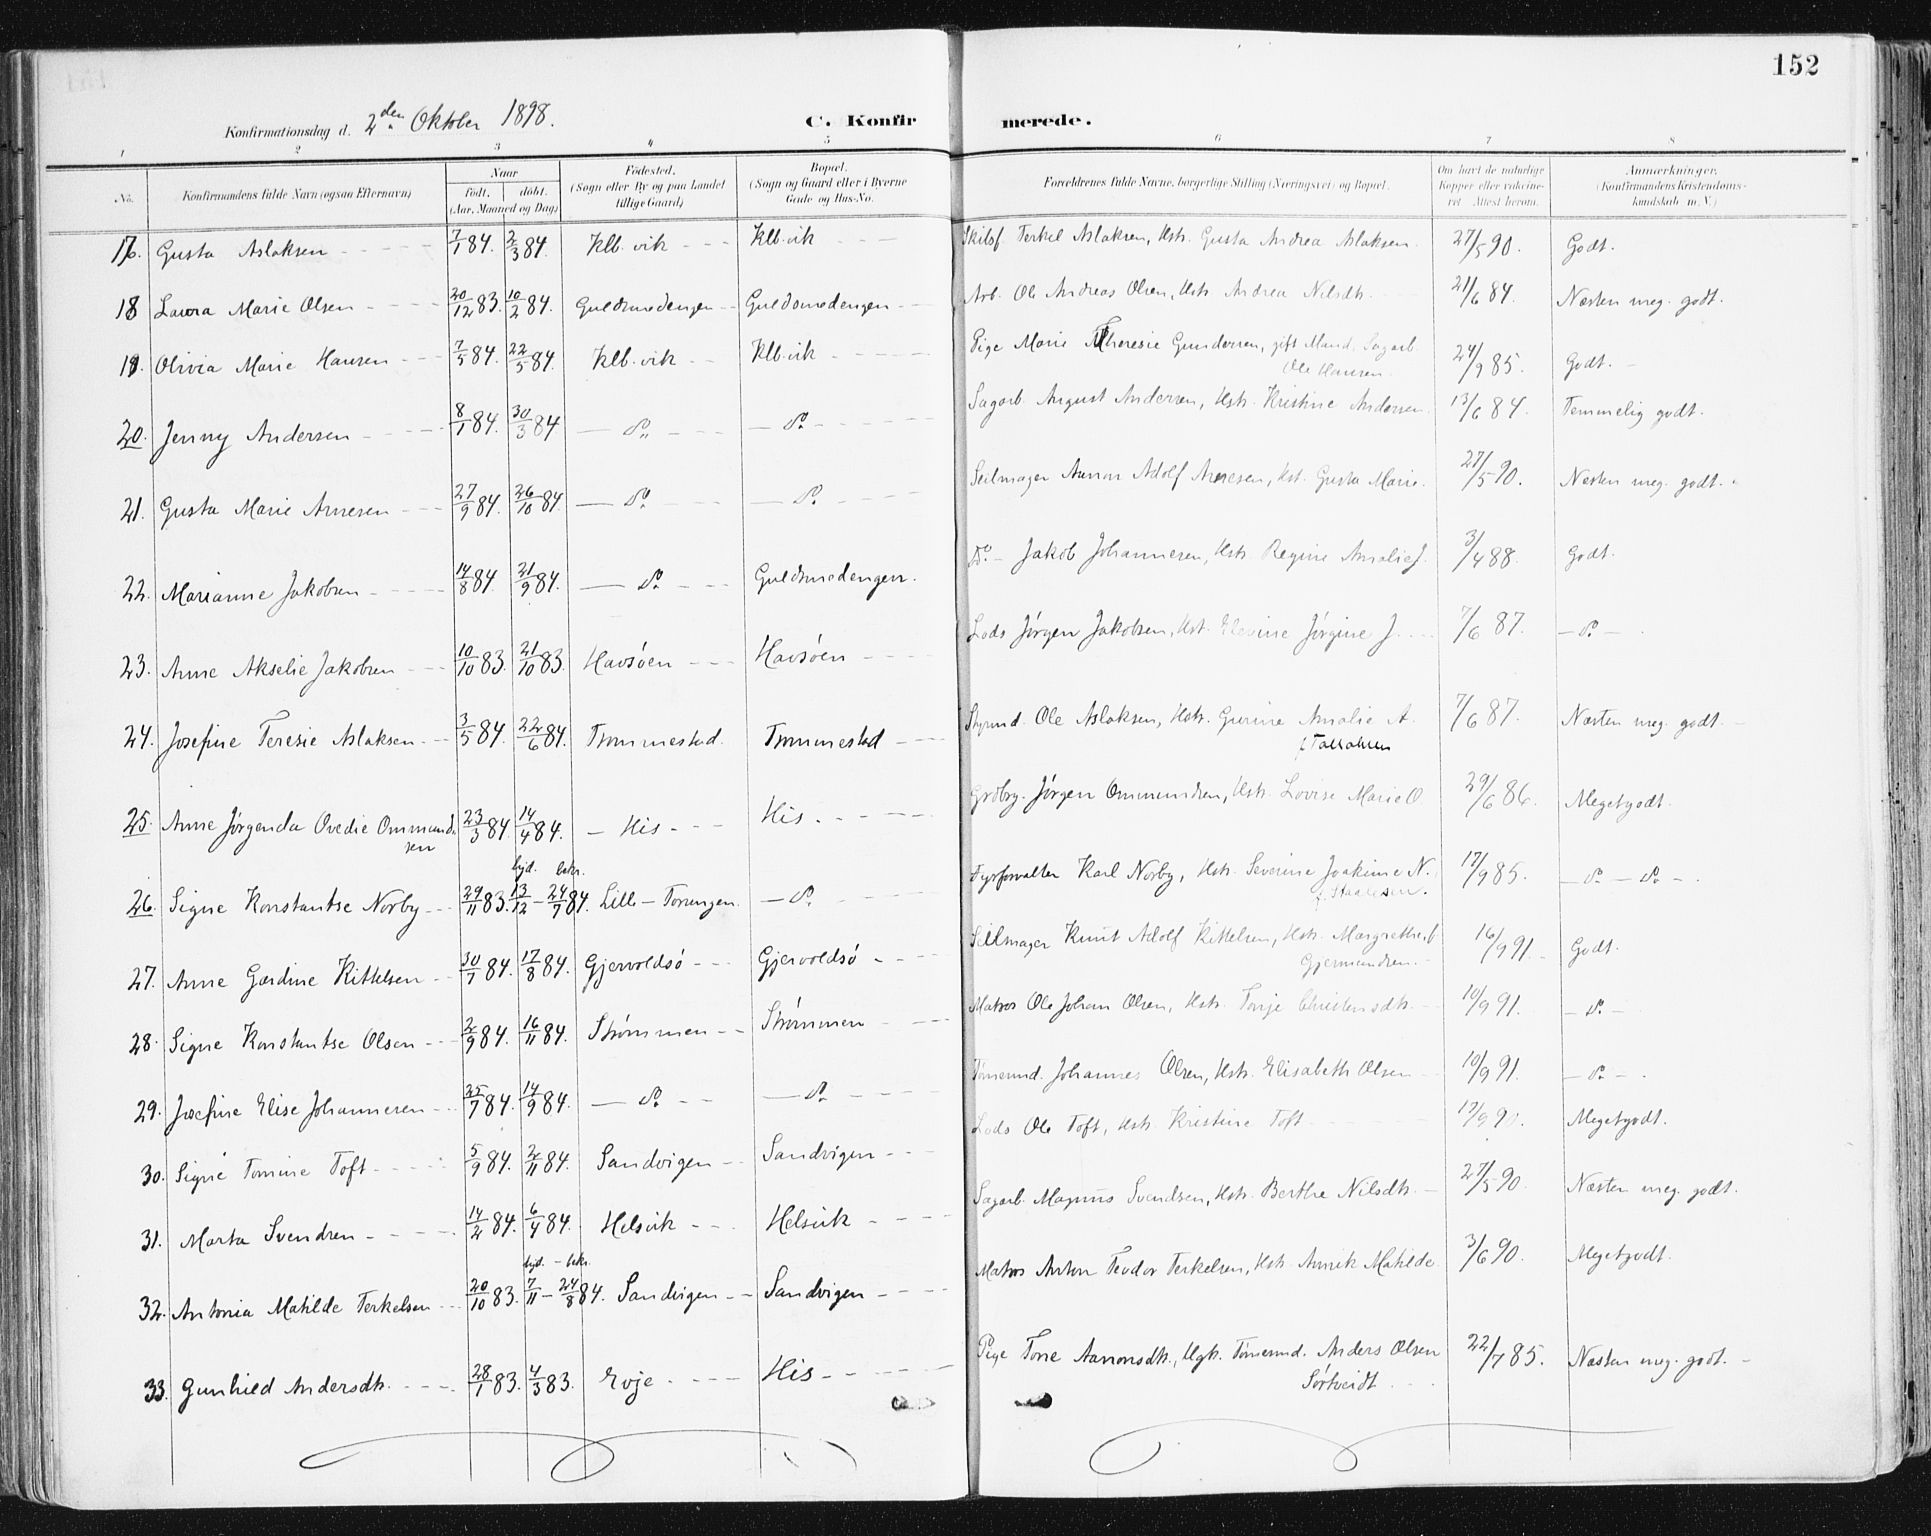 152
Konfirmationsdag d. 2den Oktober 1898. C. Konfirmerede.
1 2 3 4 5 6 7 8
No. Konfirmandens fulde Navn (ogsaa Efternavn) Naar født, døbt. (Aar, Maaned og Dag) Fødested. (Sogn eller By og paa Landet tillige Gaard) Bopæl. (Sogn og Gaard eller i Byerne Gade og Hus-No. Forældrenes fulde Navne, borgerlige Stilling (Næringsvei) og Bopæl. Om havt de naturlige Kopper eller vaccineret. Attest herom. Anmærkninger. (Konfirmandens Kristendomskundskab m. V.)
17. Gusta Aslaksen 7/1 84. 2/3 84. Klb.vik Klb.vik Skibsf. Terkel Aslaksen, Hstr. Gusta Andrea Aslaksen. 27/5 90. Godt.
18 Laura Marie Olsen 20/12 83. 10/2 84. Guldsmedengen Guldsmedengen Arb. Ole Andreas Olsen, Hstr. Andrea Nilsdtr. 21/6 84. Næsten meg. godt.
19. Olivia Marie Hansen 7/5 84. 22/5 84. Klb.vik Klb.vik Pige Marie Theresie Gundersen, gift Mand. Sagarb. Ole Hansen. 24/9 85. Godt.
20. Jenny Andersen 8/1 84. 30/3 84 — do — — do — Sagarb. August Andersen, Hstr. Kristine Andersen. 13/6 84. Temmelig godt.
21. Gusta Marie Arnesen 27/9 84. 26/10 84. — do — — do — Seilmager Aanon Adolf Arnesen, Hst. Gusta Marie. 27/5 90. Næsten meg. godt.
22. Marianne Jakobsen 14/8 84. 21/9 84. — do — Guldsmedengen. Do — Jakob Johannesen, Hstr. Regine Amalie J. 3/4 88. Godt.
23. Anne Akselie Jakobsen 10/10 83. 21/10 83. Havsøen Havsøen Lods Jørgen Jakobsen, Hst. Elevine Jørgine J. 7/6 87. — do —
24. Josefine Teresie Aslaksen 3/5 84. 22/6 84. Trommestad. Trommestad Styrmd. Ole Aslaksen, Hstr. Gurine Amalie A. 7/6 87. Næsten meg. godt.
25. Anne Jørgenda Ovedie Ommundsen 23/3 84. 14/4 84. — His His Grdbrg. Jørgen Ommundsen, Hstr. Lovise Marie O. 29/6 86. Megetgodt.
hjd. bekr.
26. Signe Konstantse Norby 29/11 83. 13/12 — 24/7 84. Lille-Torungen. — do Fyrforvalter Karl Norby, Hstr. Severine Joakime N. 17/9 85. — do — do —
27. Anne Gardine Kittelsen 30/7 84. 17/8 84. Gjervoldsø Gjervoldsø Seilmager Knut Adolf Kittelsen, Hstr. Margrethe f. Gjermundsen. 16/9 91. Godt.
28. Signe Konstantse Olsen 2/9 84. 16/11 84. Strømmen Strømmen Matros Ole Johan Olsen, Hstr. Tonje Christensdtr. 10/9 91. — do —
29. Josefine Elise Johannesen 25/7 84. 14/9 84. — do — — do — Tømermd. Johannes Olsen, Hstr. Elisabeth Olsen 10/9 91. — do —
30. Signe Tomine Toft 5/9 84. 2/11 84. Sandvigen Sandvigen Lods Ole Toft, Hstr. Kristine Toft 90. Megetgodt.
31. Marta Svendsen 14/2 84. 6/4 84. Helsvik Helsvik Sagarb. Magnus Svendsen, Hstr. Berthe Nilsdtr. 27/5 90. Næsten meg. godt.
hjd. — bekr.
32. Antonia Matilde Terkelsen 20/10 83. 7/11 — 24/8 84. Sandvigen Sandvigen Matros Anton Teodor Terkelsen, Hst. Annik Matilde. 3/6 90. Megetgodt.
33. Gunhild Andersdtr. 28/1 83. 4/3 83. Evje His Pige Tone Aanonsdtr., Ugk. Tømermd. Anders Olsen Sørtveidt 22/7 85. Næsten meg. godt.